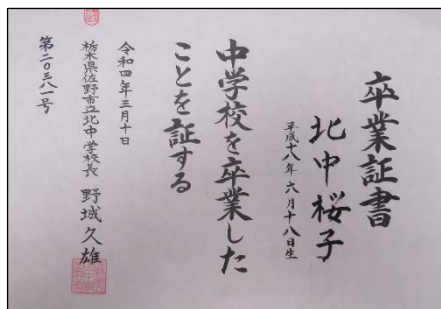 卒業証書
北中桜子
平成十八年六月十八日生
中学校を卒業した
ことを証する
令和四年三月十日
栃木県佐野市立北中学校長 野城久雄
第二〇三八一号